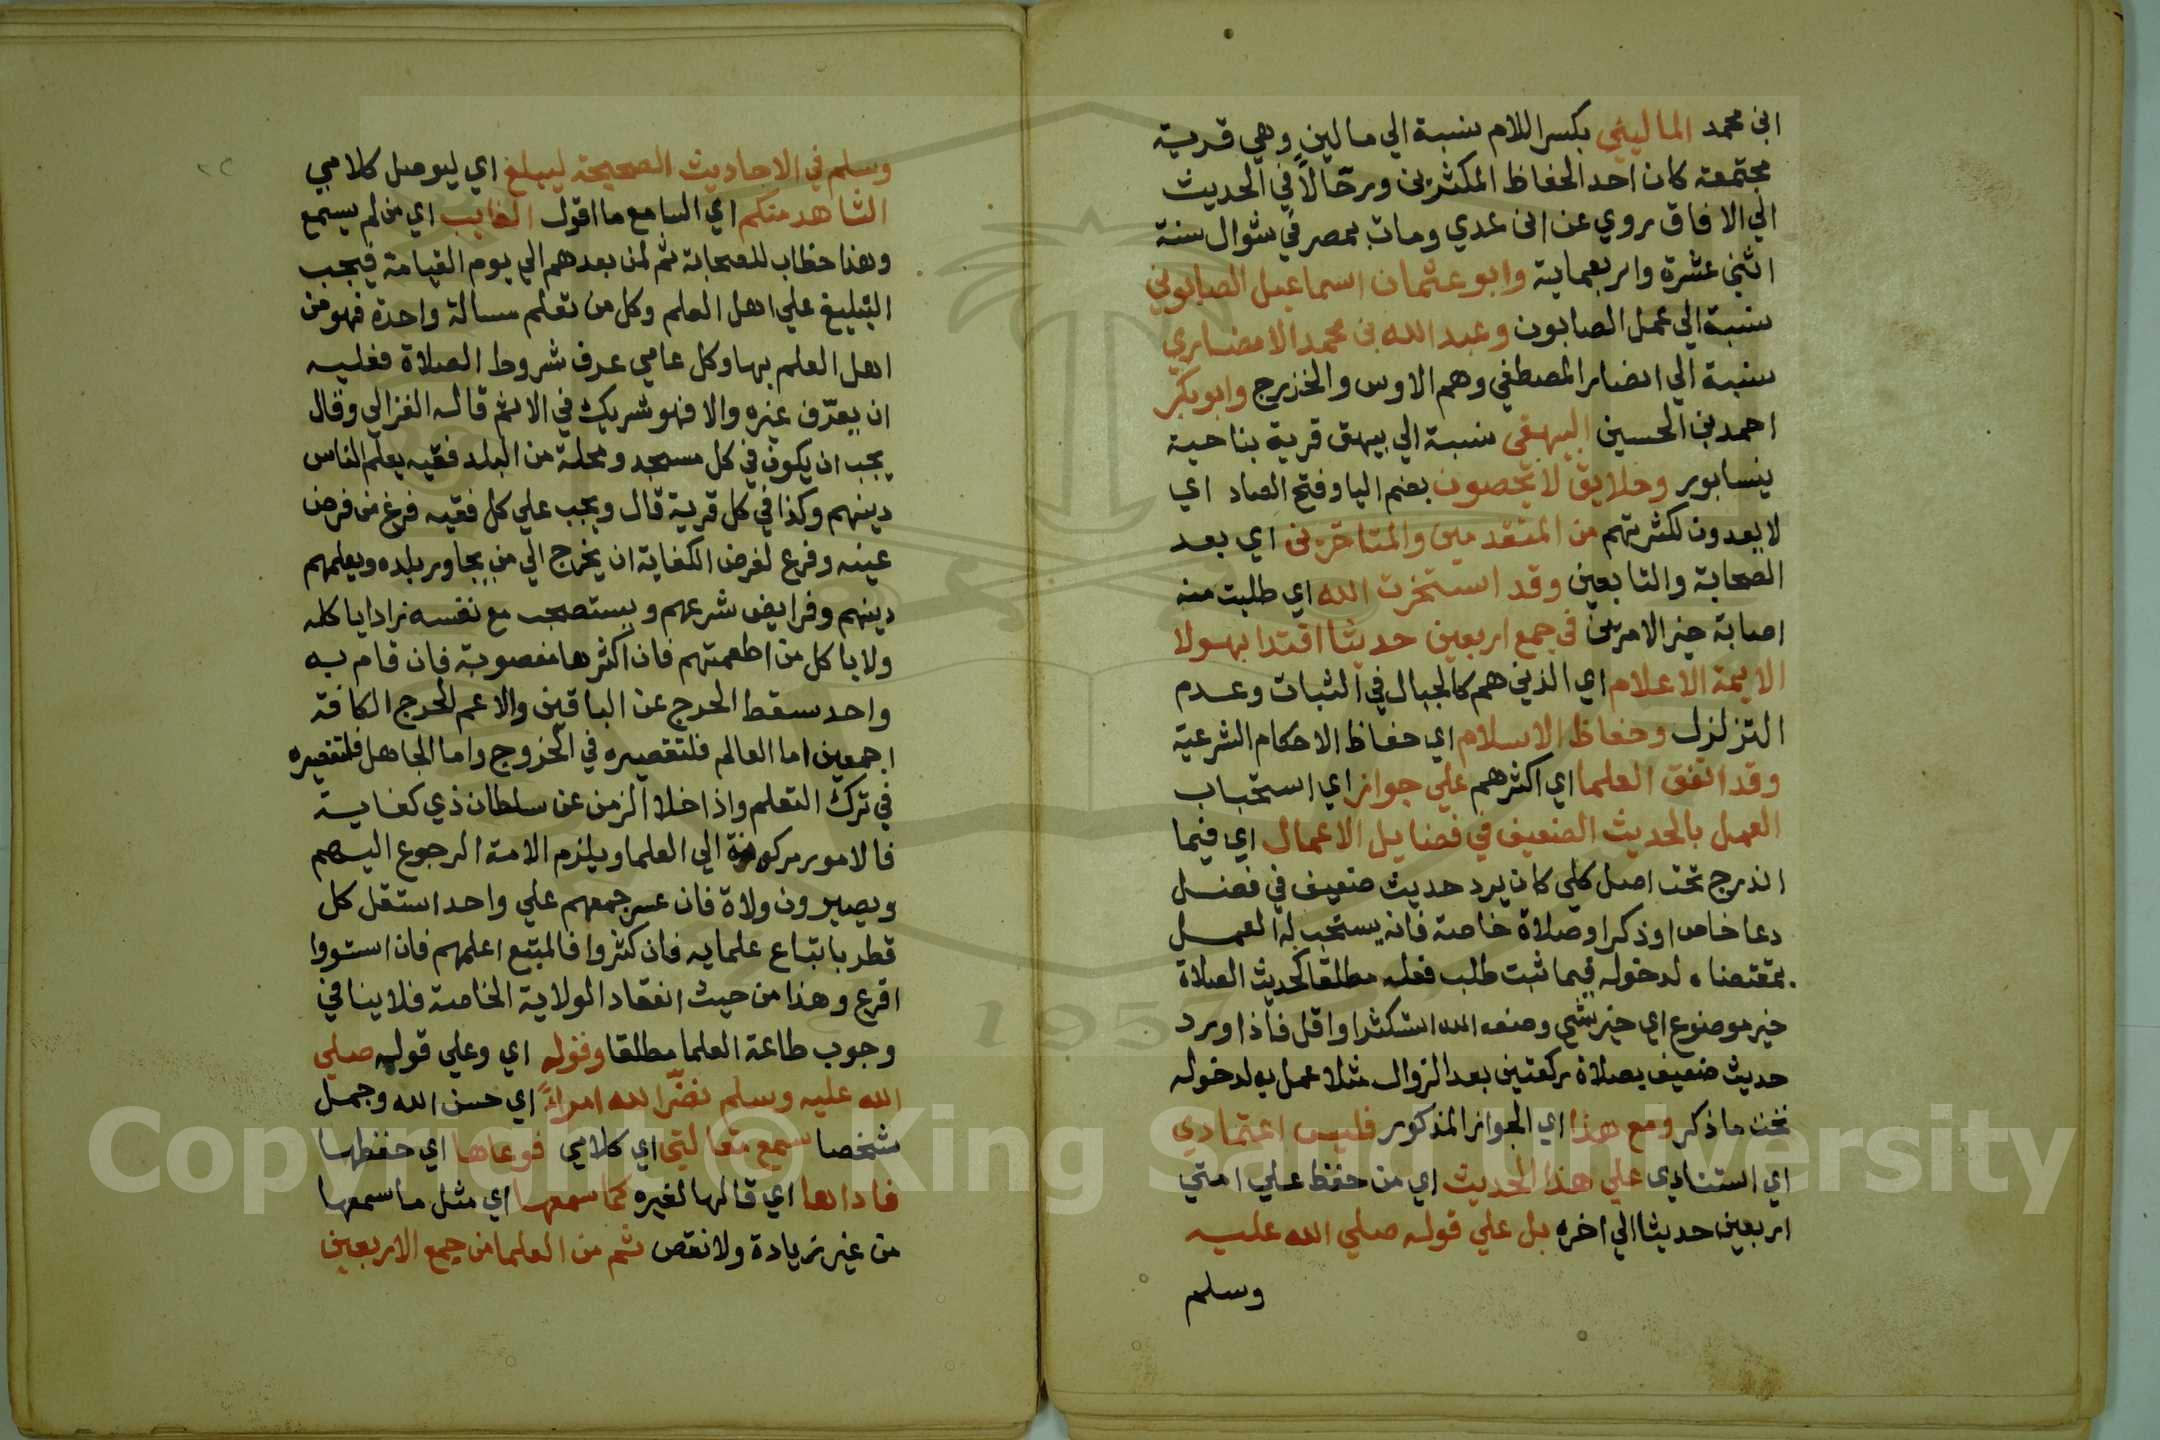 ابن محمد الماليني بكسر اللام نسبة الي مالين وهي قرية
مجتمعة كان احد الحفاظ المكثرين ورحّالاً في الحديث
الي الافاق روي عن ابن عدي ومات بمصر في شوال سنة
اثني عشرة واربعماية وابو عثمان اسماعيل الصابوني
نسبة الي عمل الصابون وعبد الله بن محمد الانصاري
نسبة الي انصار المصطفي وهم الاوس والخزرج وابو بكر
احمد بن الحسين البيهقي نسبة الي بيهق قرية بناحية
نيسابور وخلايق لا يحصون بضم اليا وفتح الصاد اي
لا يعدون لكثرتهم من المتقدمين والمتاخرين اي بعد
الصحابة والتابعين وقد استخرت الله اي طلبت منه
اصابة خير الامرين في جمع اربعين حديثا اقتدا بهولا
الايمة الاعلام اي الذين هم كالجبال في الثبات وعدم
التزلزل وحفاظ الاسلام اي حفاظ الاحكام الشرعية
وقد اتفق العلما اي اكثرهم علي جواز اي استحباب
العمل بالحديث الضعيف في فضايل الاعمال اي فيما
اندرج تحت اصل كلي كان يرد حديث ضعيف في فضل
دعا خاص او ذكر او صلاة خاصة فانه يستحب له العمل
بمقتضاه لدخوله فيما ثبت طلب فعله مطلقا كحديث الصلاة
خير موضوع اي خير شي وضعه الله استكثر او اقل فاذا ورد
حديث ضعيف بصلاة ركعتين بعد الزوال مثلا عمل به لدخوله
تحت ما ذكر ومع هذا اي الجواز المذكور فليس اعتمادي
اي استنادي علي هذا الحديث اي من حفظ علي امتي
اربعين حديثا الي اخره بل علي قوله صلي الله عليه
وسلم
وسلم في الاحاديث الصحيحة ليبلغ اي ليوصل كلامي
الشاهد منكم اي السامع ما اقول الغايب اي من لم يسمع
وهذا خطاب للصحابة ثم لمن بعدهم الي يوم القيامة فيجب
التبليغ علي اهل العلم وكل من تعلم مسالة واحدة فهو من
اهل العلم بها وكل عامي عرف شروط الصلاة فعليه
ان يعرّف غيره والا فهو شريك في الاثم قاله الغزالي وقال
يجب ان يكون في كل مسجد ومحلة من البلد فقيه يعلم الناس
دينهم وكذا في كل قرية قال ويجب علي كل فقيه فرغ من فرض
عينه وفرغ لفرض الكفاية ان يخرج الي من يجاور بلده ويعلمهم
دينهم وفرايض شرعهم ويستصحب مع نفسه زادا ياكله
ولا ياكل من اطعمتهم فان اكثرها مغصوبة فان قام به
واحد سقط الحرج عن الباقين والا عم الحرج الكافة
اجمعين اما العالم فلتقصيره في الخروج واما الجاهل فلتقصيره
في ترك التعلم واذا خلا الزمن عن سلطان ذي كفاية
فالامور مركونة الي العلما ويلزم الامة الرجوع اليهم
ويصيرون ولاة فان عسر جمعهم علي واحد استقل كل
قطر باتباع علمايه فان كثروا فالمتبع اعلمهم فان استووا
اقرع وهذا من حيث انعقاد الولاية الخاصة فلا ينافي
وجوب طاعة العلما مطلقا وقوله اي وعلي قوله صلي
الله عليه وسلم نضّر الله امراً اي حسن الله وجمل
شخصا سمع مقالتي اي كلامي فوعاها اي حفظها
فاداها اي قالها لغيره كما سمعها اي مثل ما سمعها
من غير زيادة ولا نقص ثم من العلما من جمع الاربعين
Copyright © King Saud University
1957